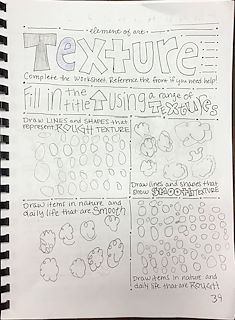 element of art
Texture
Complete the Worksheet. Reference the front if you need help!
Fill in the title using a range of textures
Draw LINES and SHAPES that
represent ROUGH TEXTURE
Draw lines and shapes that
show SMOOTH TEXTURE
Draw items in nature and
daily life that are Smooth
Draw items in nature and
daily life that are ROUGH
39